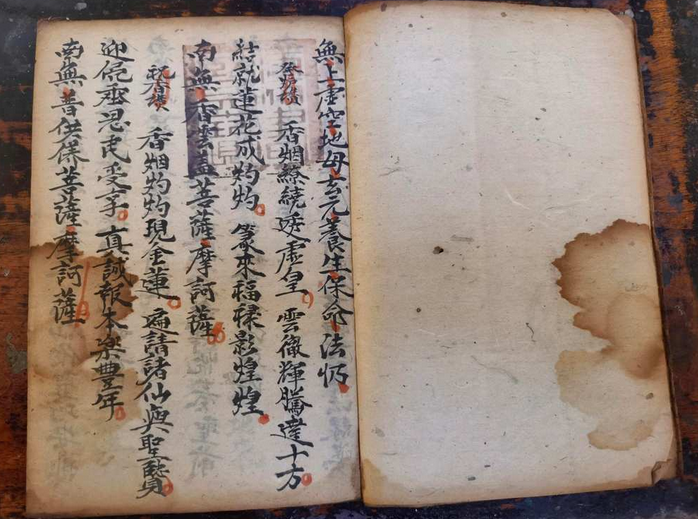 無上虛空地母玄元養生保命法忏
發爐讚 香烟繚繞透虛皇 雲徹輝騰達十方
結就蓮花成灼灼 篆來福祿彩煌煌
南無香雲蓋菩薩摩訶薩
祝香讚 香烟灼灼現金蓮 扁請諸仙與聖賢
迎 恩民受享 真誠報本樂豐年
南無普供保菩薩摩訶薩